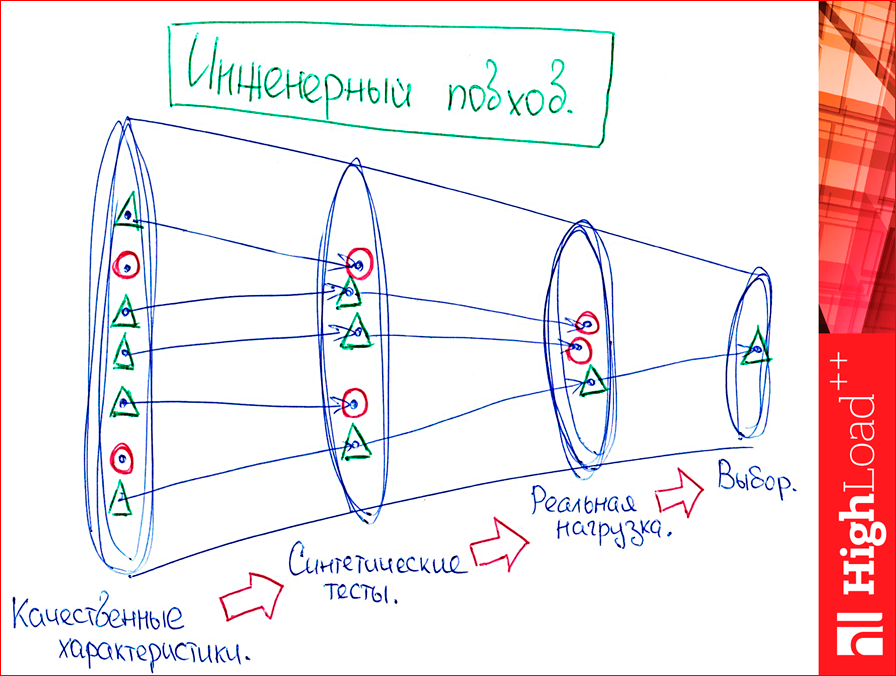 Инженерный подход.
Качественные
характеристики.
Синтетические
тесты.
Реальная
нагрузка.
Выбор.
HighLoad++